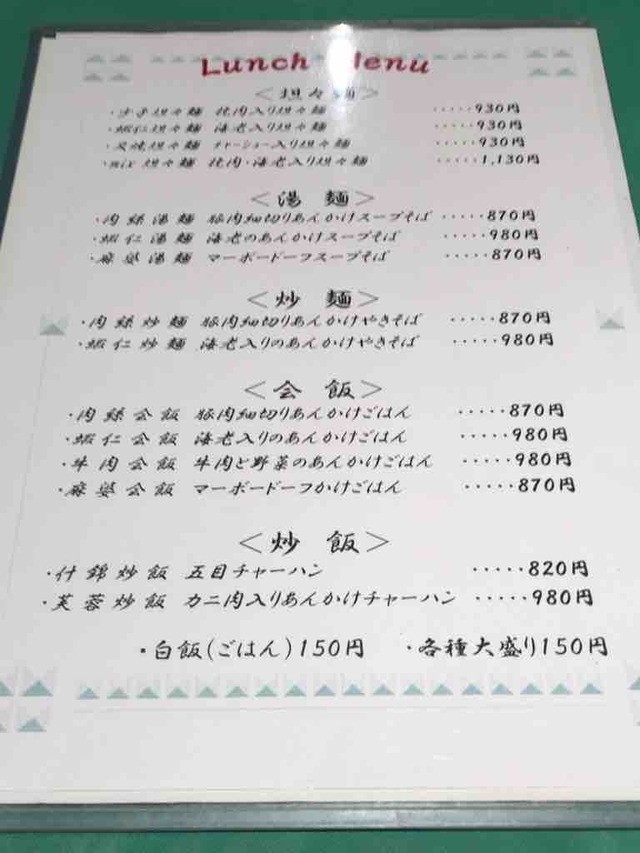 Lunch Menu
<担々麺>
・少子担々麺 挽肉入り担々麺 ・・・・・930円
・蝦仁担々麺 海老入り担々麺 ・・・・・930円
・叉焼担々麺 チャーシュー入り担々麺 ・・・・・930円
・mix担々麺 挽肉・海老入り担々麺 ・・・・・1,130円
<湯 麺>
・肉絲湯麺 豚肉細切りあんかけスープそば ・・・・・870円
・蝦仁湯麺 海老のあんかけスープそば ・・・・・980円
・麻婆湯麺 マーボードーフスープそば ・・・・・870円
<炒 麺>
・肉絲炒麺 豚肉細切りあんかけやきそば ・・・・・870円
・蝦仁炒麺 海老入りのあんかけやきそば ・・・・・980円
<会 飯>
・肉絲会飯 豚肉細切りあんかけごはん ・・・・・870円
・蝦仁会飯 海老入りのあんかけごはん ・・・・・980円
・牛肉会飯 牛肉と野菜のあんかけごはん ・・・・・980円
・麻婆会飯 マーボードーフかけごはん ・・・・・870円
<炒 飯>
・什錦炒飯 五目チャーハン ・・・・・820円
・芙蓉炒飯 カニ肉入りあんかけチャーハン ・・・・・980円
・白飯(ごはん)150円 ・各種大盛り150円